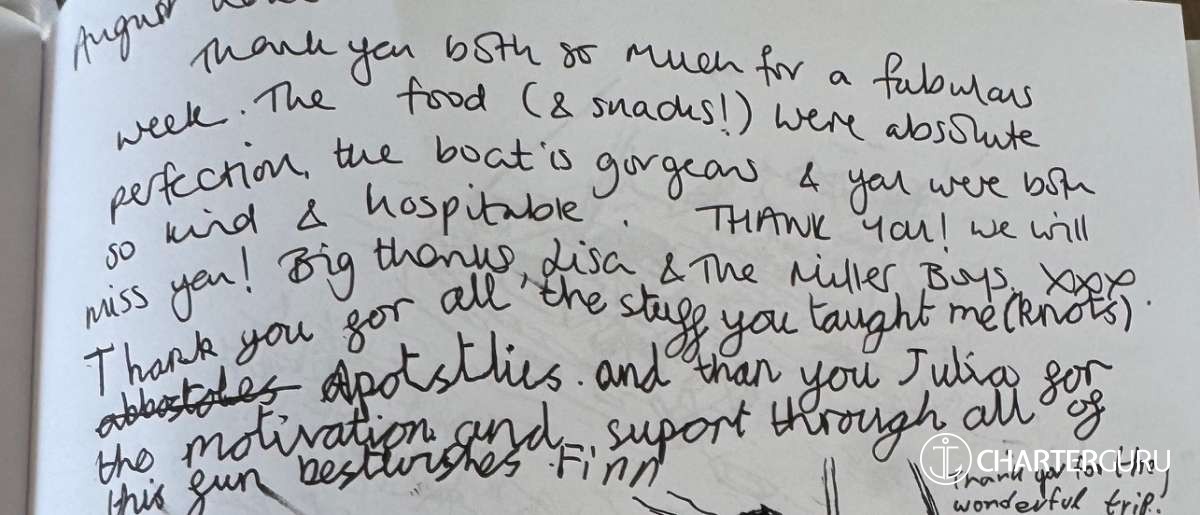 August
Thank you both so much for a fabulous
week. The food (& snacks!) were absolute
perfection, the boat is gorgeous & you were both
so kind & hospitable. THANK YOU! we will
miss you! Big thanks, Lisa & The Miller Boys. xxxx
Thank you for all the stuff you taught me (knots)
abbostoles Apotstlies. and than you Julia for
the motivation and suport through all of
this fun best wishes Finn
CHARTERGURU
Thank you for the
wonderful trip.